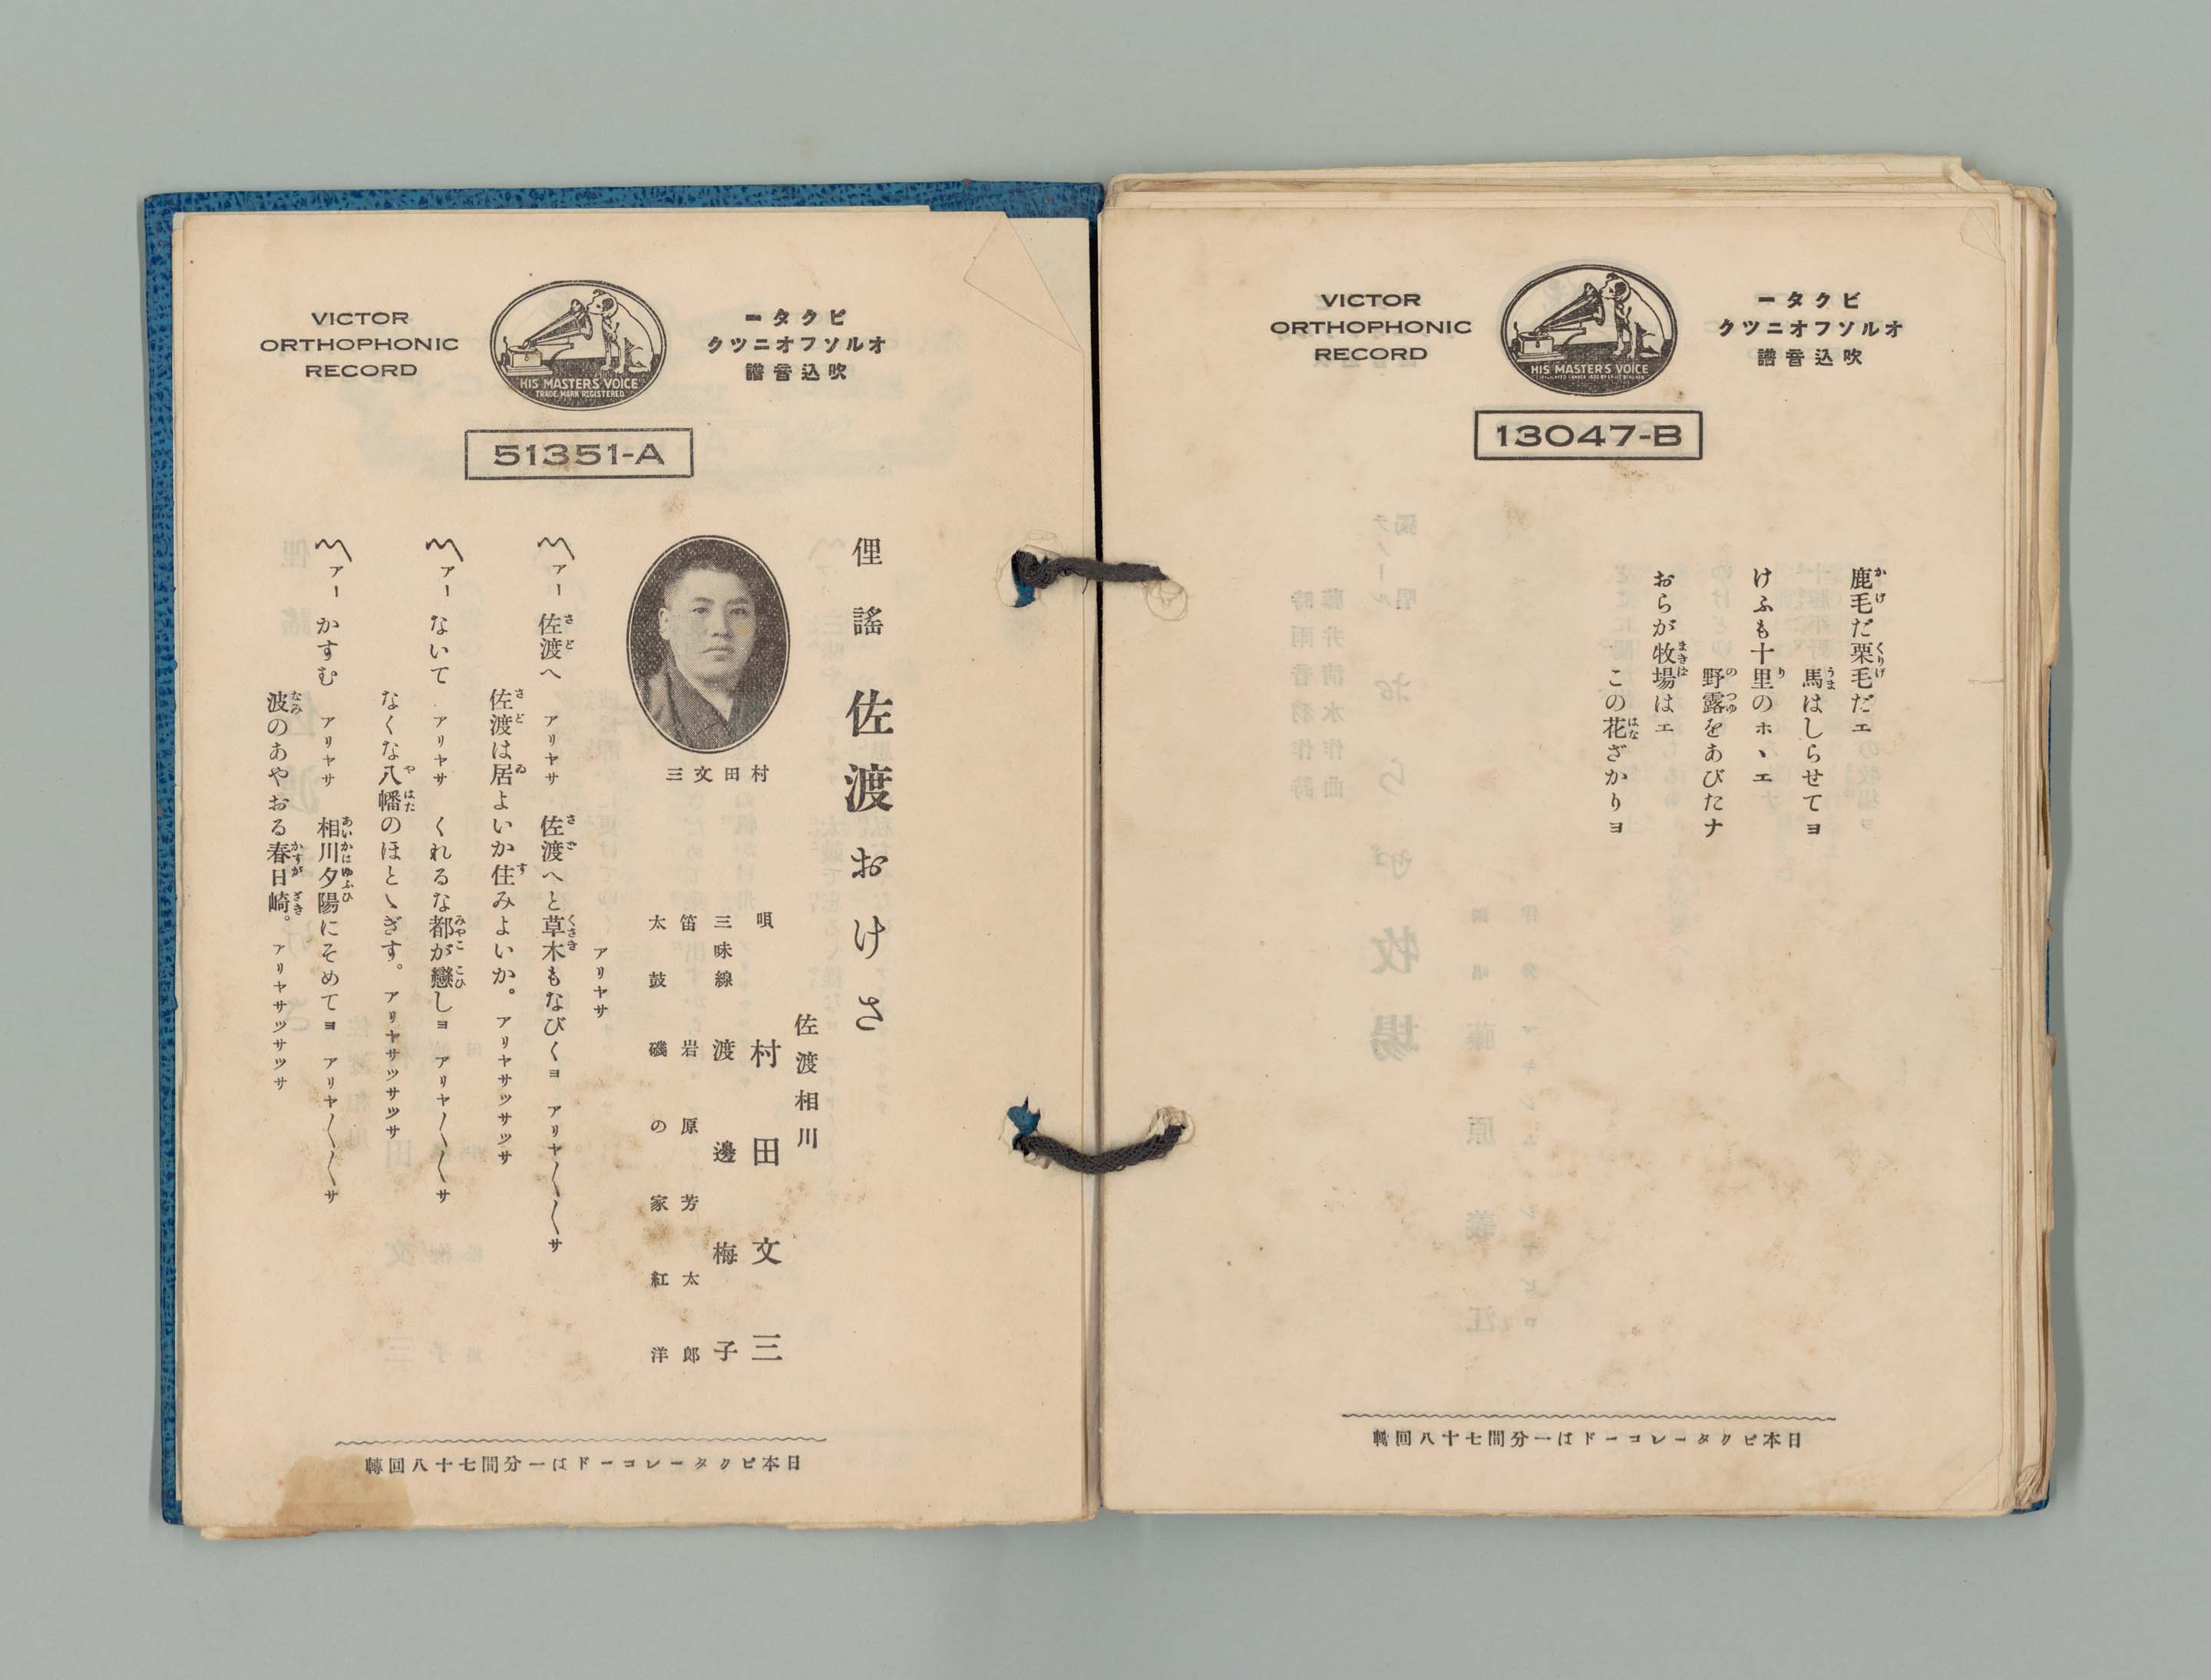 VICTOR
ORTHOPHONIC
RECORD
HIS MASTER'S VOICE
ービクタ
オルソフオニツク
吹込音譜
13047-B
鹿毛だ栗毛だエ
馬はしらせてヨ
けふも十里のホヽエ
野露をあびたナ
おらが牧場はエ
この花ざかりヨ
日本ビクターレコードは一分間七十八回轉
VICTOR
ORTHOPHONIC
RECORD
HIS MASTER'S VOICE
TRADE MARK REGISTERED
ビクター
オルソフオニツク
吹込音譜
51351-A
俚謠 佐渡おけさ
佐渡相川
唄 村田文三
三味線 渡邊梅子
笛 岩原芳太郎
太鼓 磯の家紅洋
村田文三
アリヤサ
〽アー 佐渡へ アリヤサ 佐渡へと草木もなびくヨ アリヤ〱〱サ
佐渡は居よいか住みよいか。 アリヤサツサツサ
〽アー ないて アリヤサ くれるな都が戀しヨ アリヤ〱〱サ
なくな八幡のほとゝぎす。 アリヤサツサツサ
〽アー かすむ アリヤサ 相川夕陽にそめてヨ アリヤ〱〱サ
波のあやおる春日崎。 アリヤサツサツサ
日本ビクターレコードは一分間七十八回轉